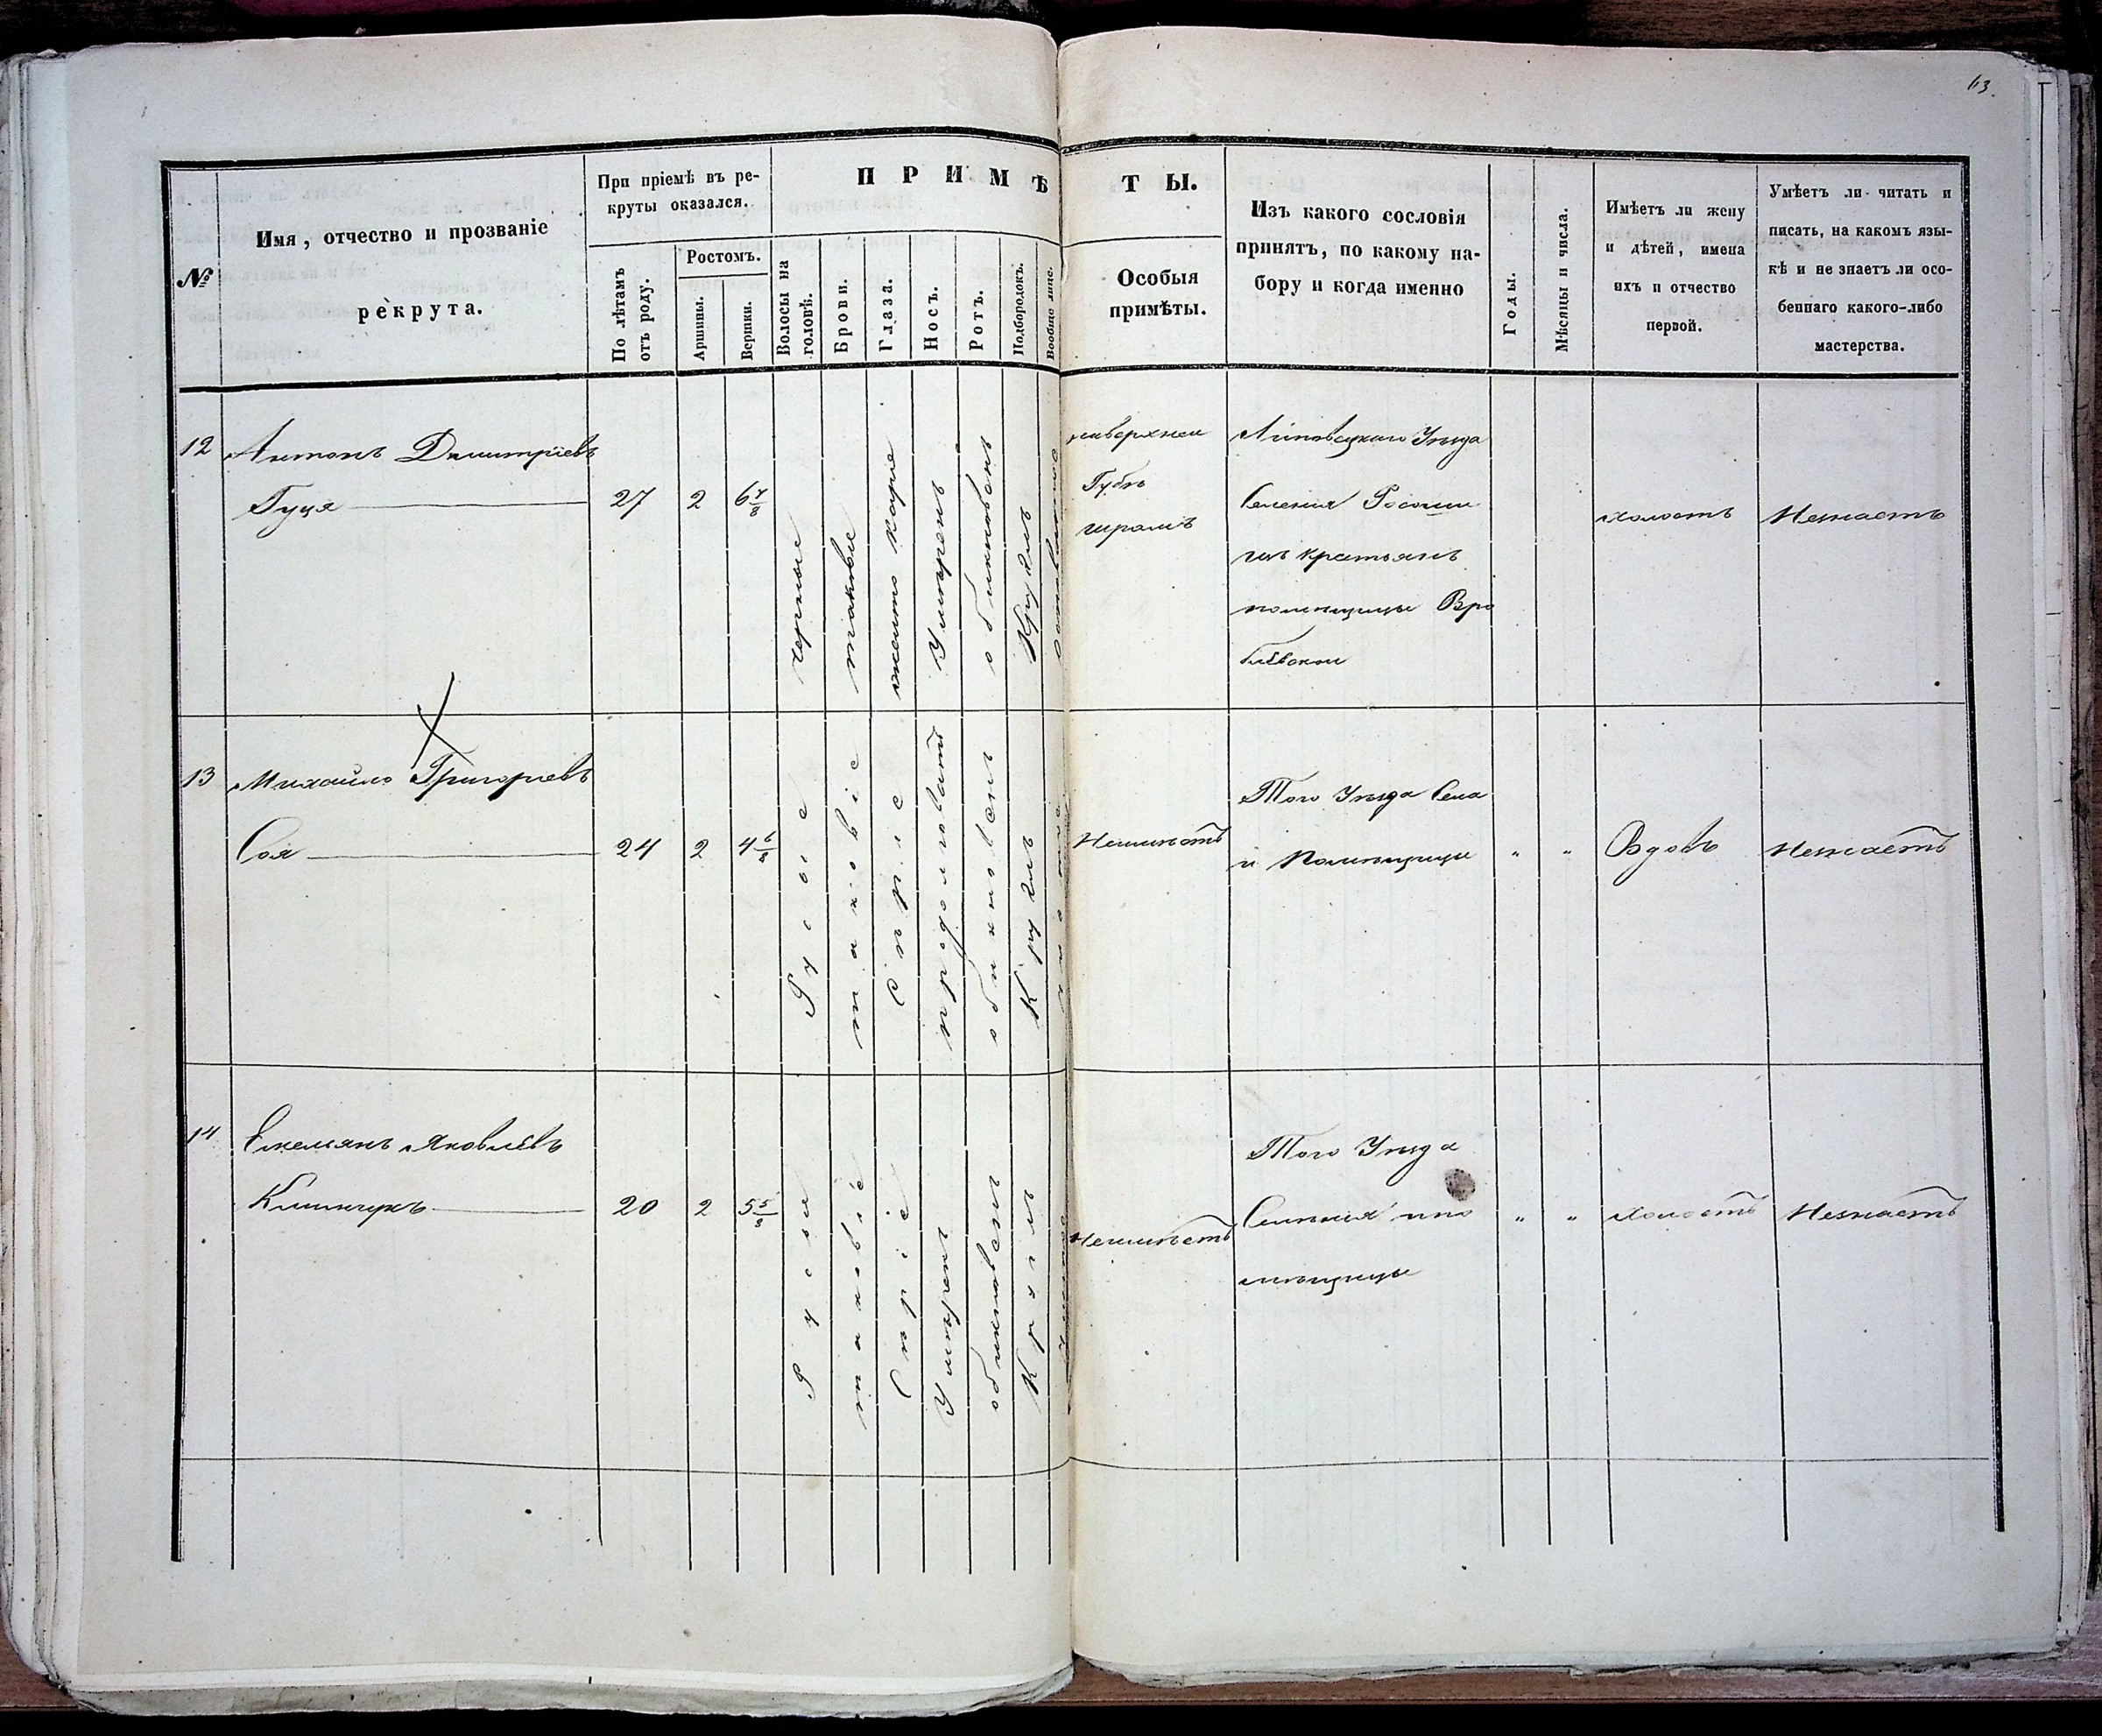 63.
№
Имя, отчество и прозваніе
рекрута.
При пріемѣ въ ре-
круты оказался.
По лѣтамъ
отъ роду.
Ростомъ.
Аршины.
Вершки.
ПРИМѢТЫ.
Волосы на
головѣ.
Брови.
Глаза.
Носъ.
Ротъ.
Подбородокъ.
Вообще лице.
Особыя
примѣты.
Изъ какого сословія
принятъ, по какому на-
бору и когда именно
Годы.
Мѣсяцы и числа.
Имѣетъ ли жену
и дѣтей, имена
ихъ и отчество
первой.
Умѣетъ ли читать и
писать, на какомъ язы-
кѣ и не знаетъ ли осо-
беннаго какого-либо
мастерства.
12
Антонъ Димитріевъ
Гуця
27
2
6 7/8
черные
таковые
желто карие
Умѣренъ
обикновенъ
Круглъ
наверхнеи
Губѣ
шрамъ
Липовецкаго Уѣзда
Селенія
изъ крестьянъ
помѣщицы Вро
блевскои
холостъ
Незнаетъ
13
Михайло Григорьевъ
Соя
24
2
4 6/8
Русые
таковіе
Сѣріе
продолговатъ
обикновенъ
Круглъ
Неимѣетъ
Того Уѣзда Села
и Помѣщицы
" "
Вдовъ
Незнаетъ
14
Емельянъ Яковлевъ
Климчукъ
20
2
5 5/8
Русы
таковіе
Сѣріе
Умѣренъ
обикновенъ
Круглъ
Неимѣетъ
Того Уѣзда
Селенія ипо
мѣщицы
" "
Холостъ
Незнаетъ